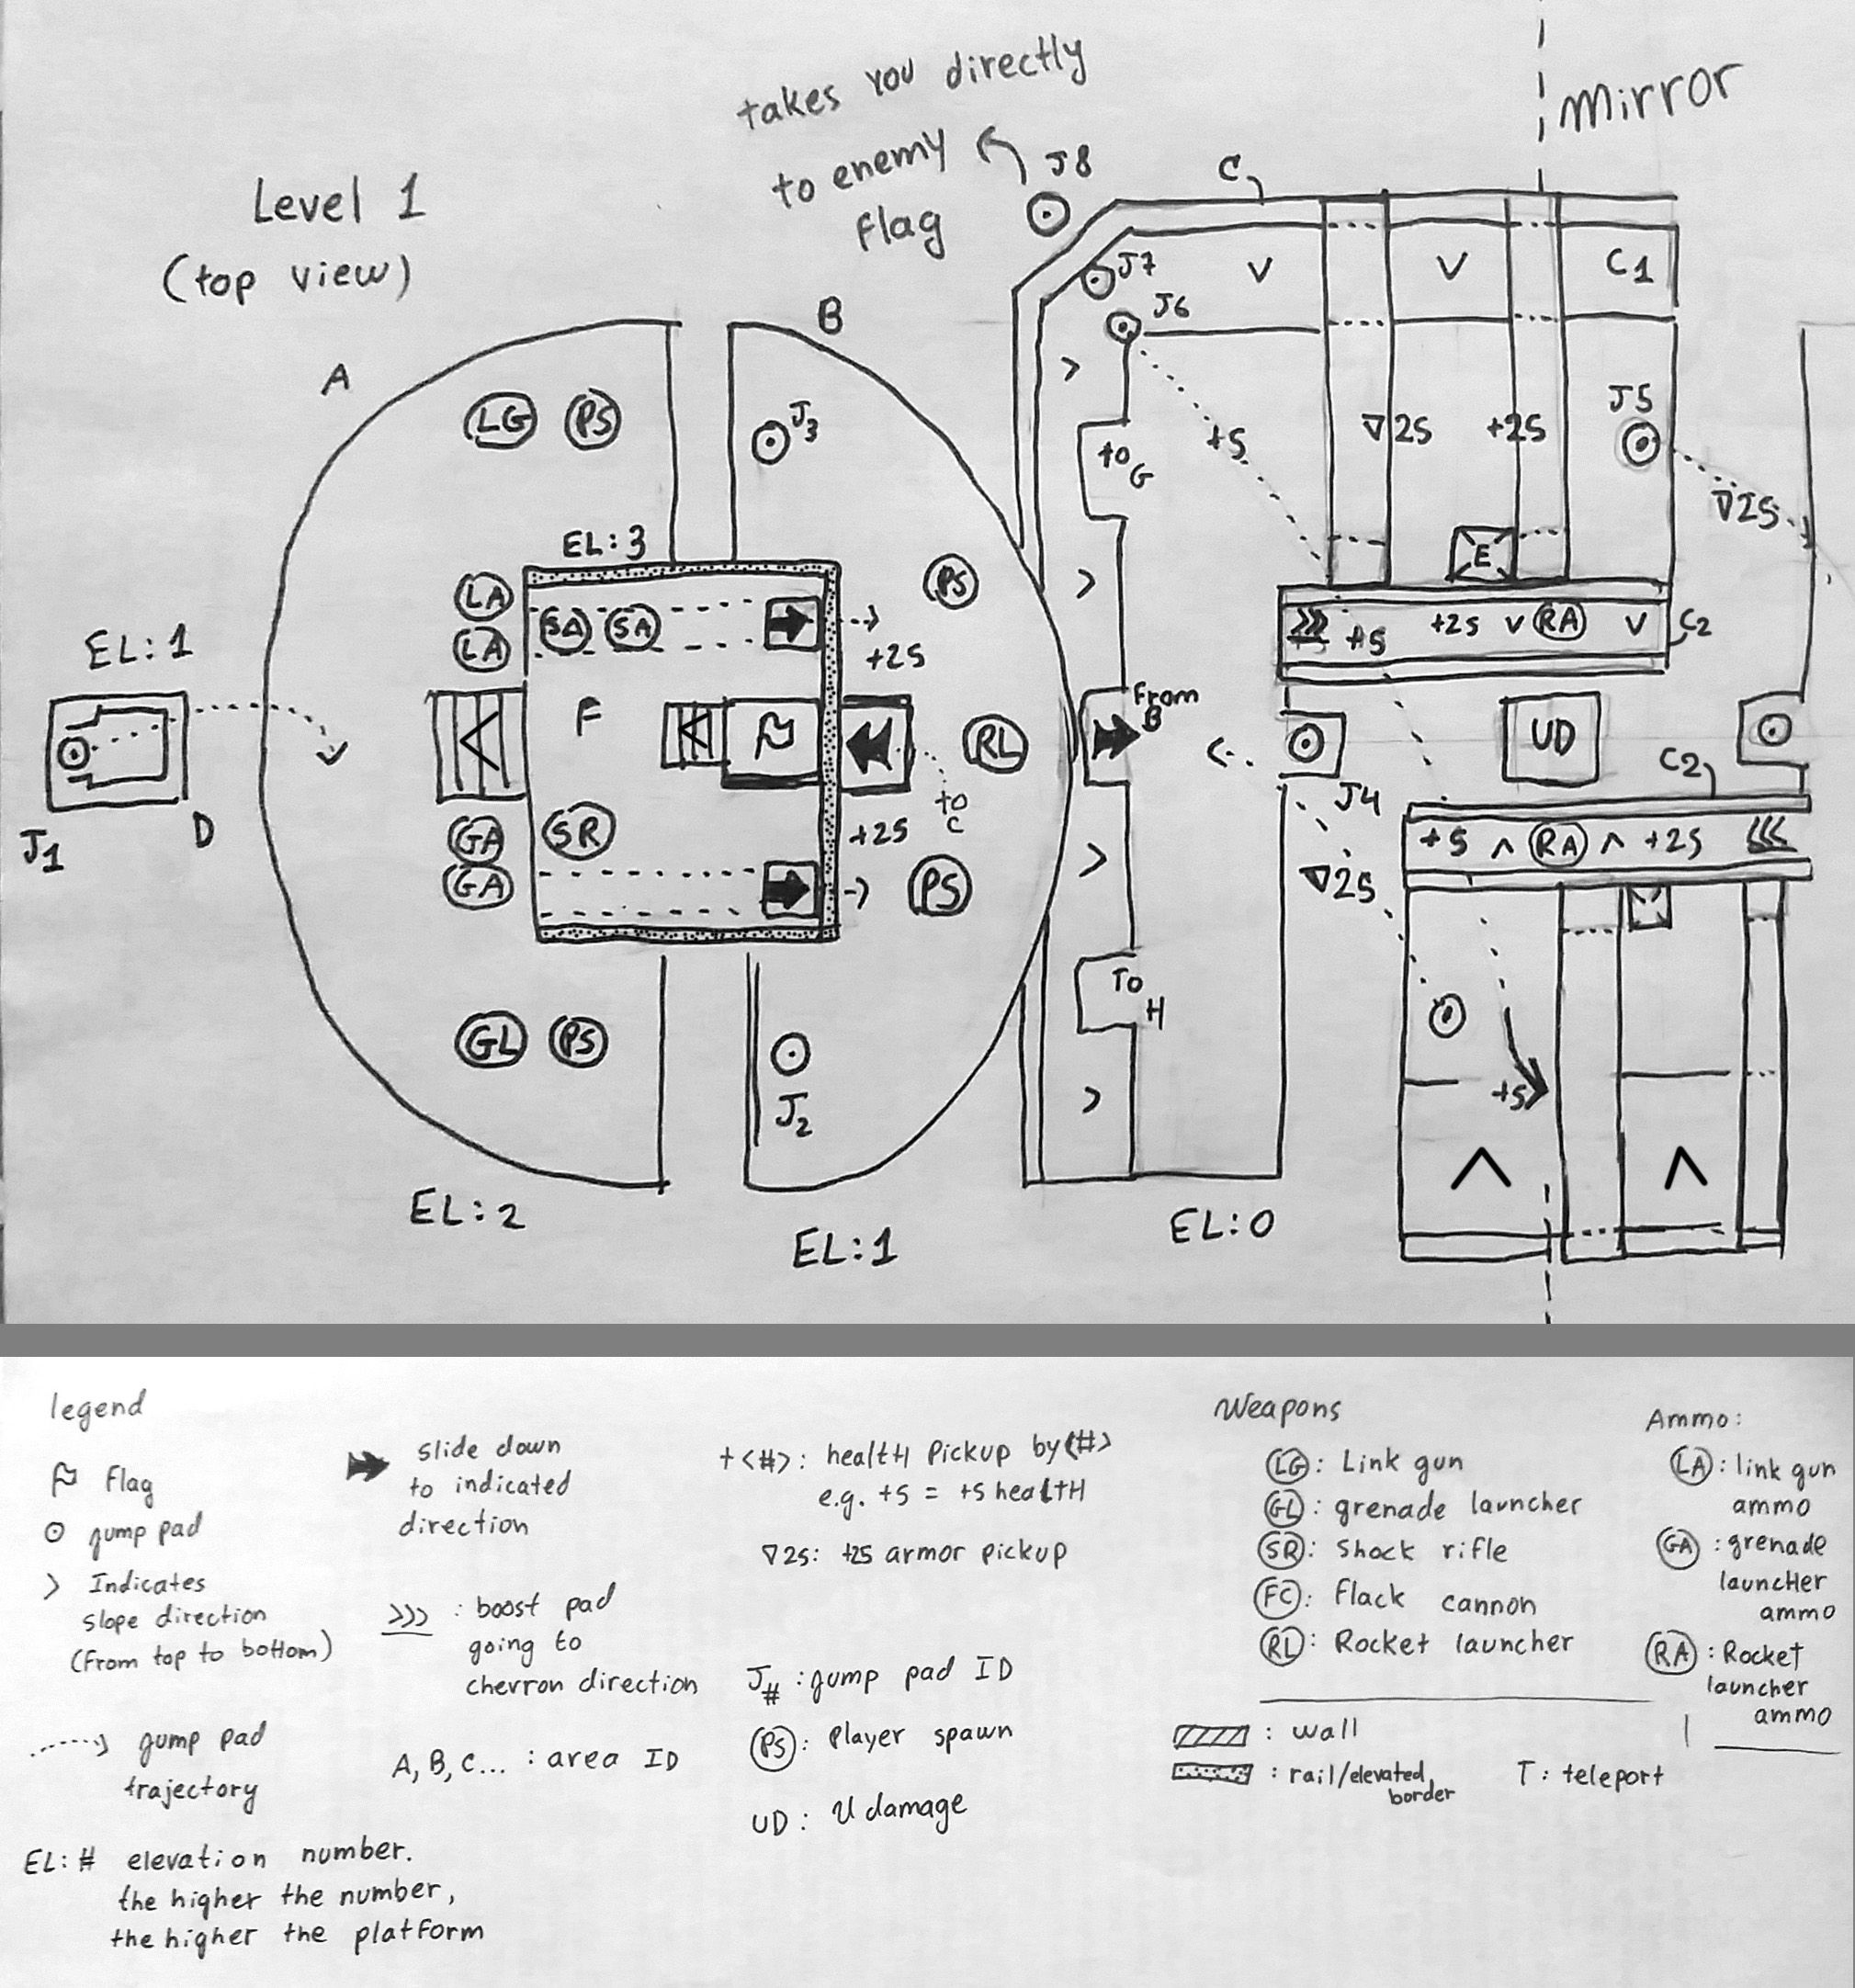 takes you directly
to enemy
flag
J8
C
mirror
Level 1
(top view)
A
B
J7
J6
V
V
C1
LG
PS
J3
to G
+5
▽25
+25
J5
▽25
EL:3
E
LA
SA
SA
PS
+25
LA
+5
+25
V
RA
V
C2
EL:1
F
From
B
RL
UD
to
C
J4
C2
J1
D
GA
SR
+25
GA
PS
▽25
+5
^
RA
^
+25
To
H
GL
PS
J2
+5
EL:2
EL:1
EL:0
legend
Flag
jump pad
> Indicates
slope direction
(From top to bottom)
jump pad
trajectory
EL:# elevation number.
the higher the number,
the higher the platform
slide down
to indicated
direction
>>> : boost pad
going to
chevron direction
A, B, C... : area ID
+<#>: health Pickup by(#>
e.g. +5 = +5 health
▽25: +25 armor pickup
J# : jump pad ID
PS: Player spawn
UD: U damage
Weapons
LG: Link gun
GL: grenade launcher
SR: Shock rifle
FC: Flack cannon
RL: Rocket launcher
: wall
: rail/elevated
border
T: teleport
Ammo:
LA: link gun
ammo
GA: grenade
launcher
ammo
RA: Rocket
launcher
ammo